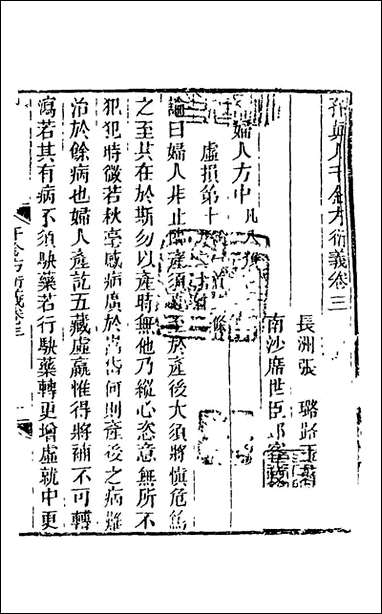 孫真人千金方衍義卷三
長洲張 璐路玉
南沙席世臣
婦人方中 凡八
虛損第十
論曰婦人非止產須於產後大須將慎危篤
之至其在於斯勿以產時無他乃縱心恣意無所不
犯犯時微若秋毫感病廣於嵩岱何則產後之病難
治於餘病也婦人產訖五藏虛羸惟得將補不可轉
瀉若其有病不須駃藥若行駃藥轉更增虛就中更
千金方衍義卷三